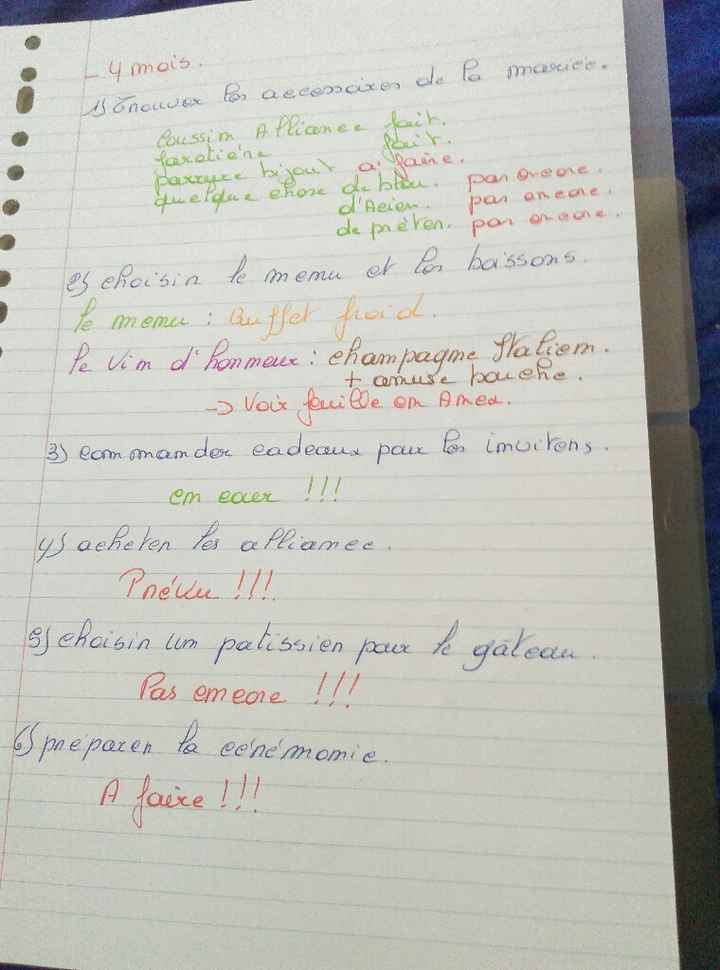 - 4 mois.
1) Trouver les accessoires de la mariée.
Coussin Alliance fait.
Jaretière fait.
parrure bijout a faire.
quelque chose de bleu. pas encore.
d'Acien. pas encore.
de prèter. pas encore.
2) choisir le menu et les boissons.
le menu : Buffet froid.
le vin d'honneur : champagne Italien.
+ amuse bouche.
-> Voir feuille en Anex.
3) commander cadeaux pour les inviters.
en cour !!!
4) acheter les alliance.
Prévu !!!
5) choisir un patissier pour le gâteau.
Pas encore !!!
6) préparer la cérémonie.
A faire !!!